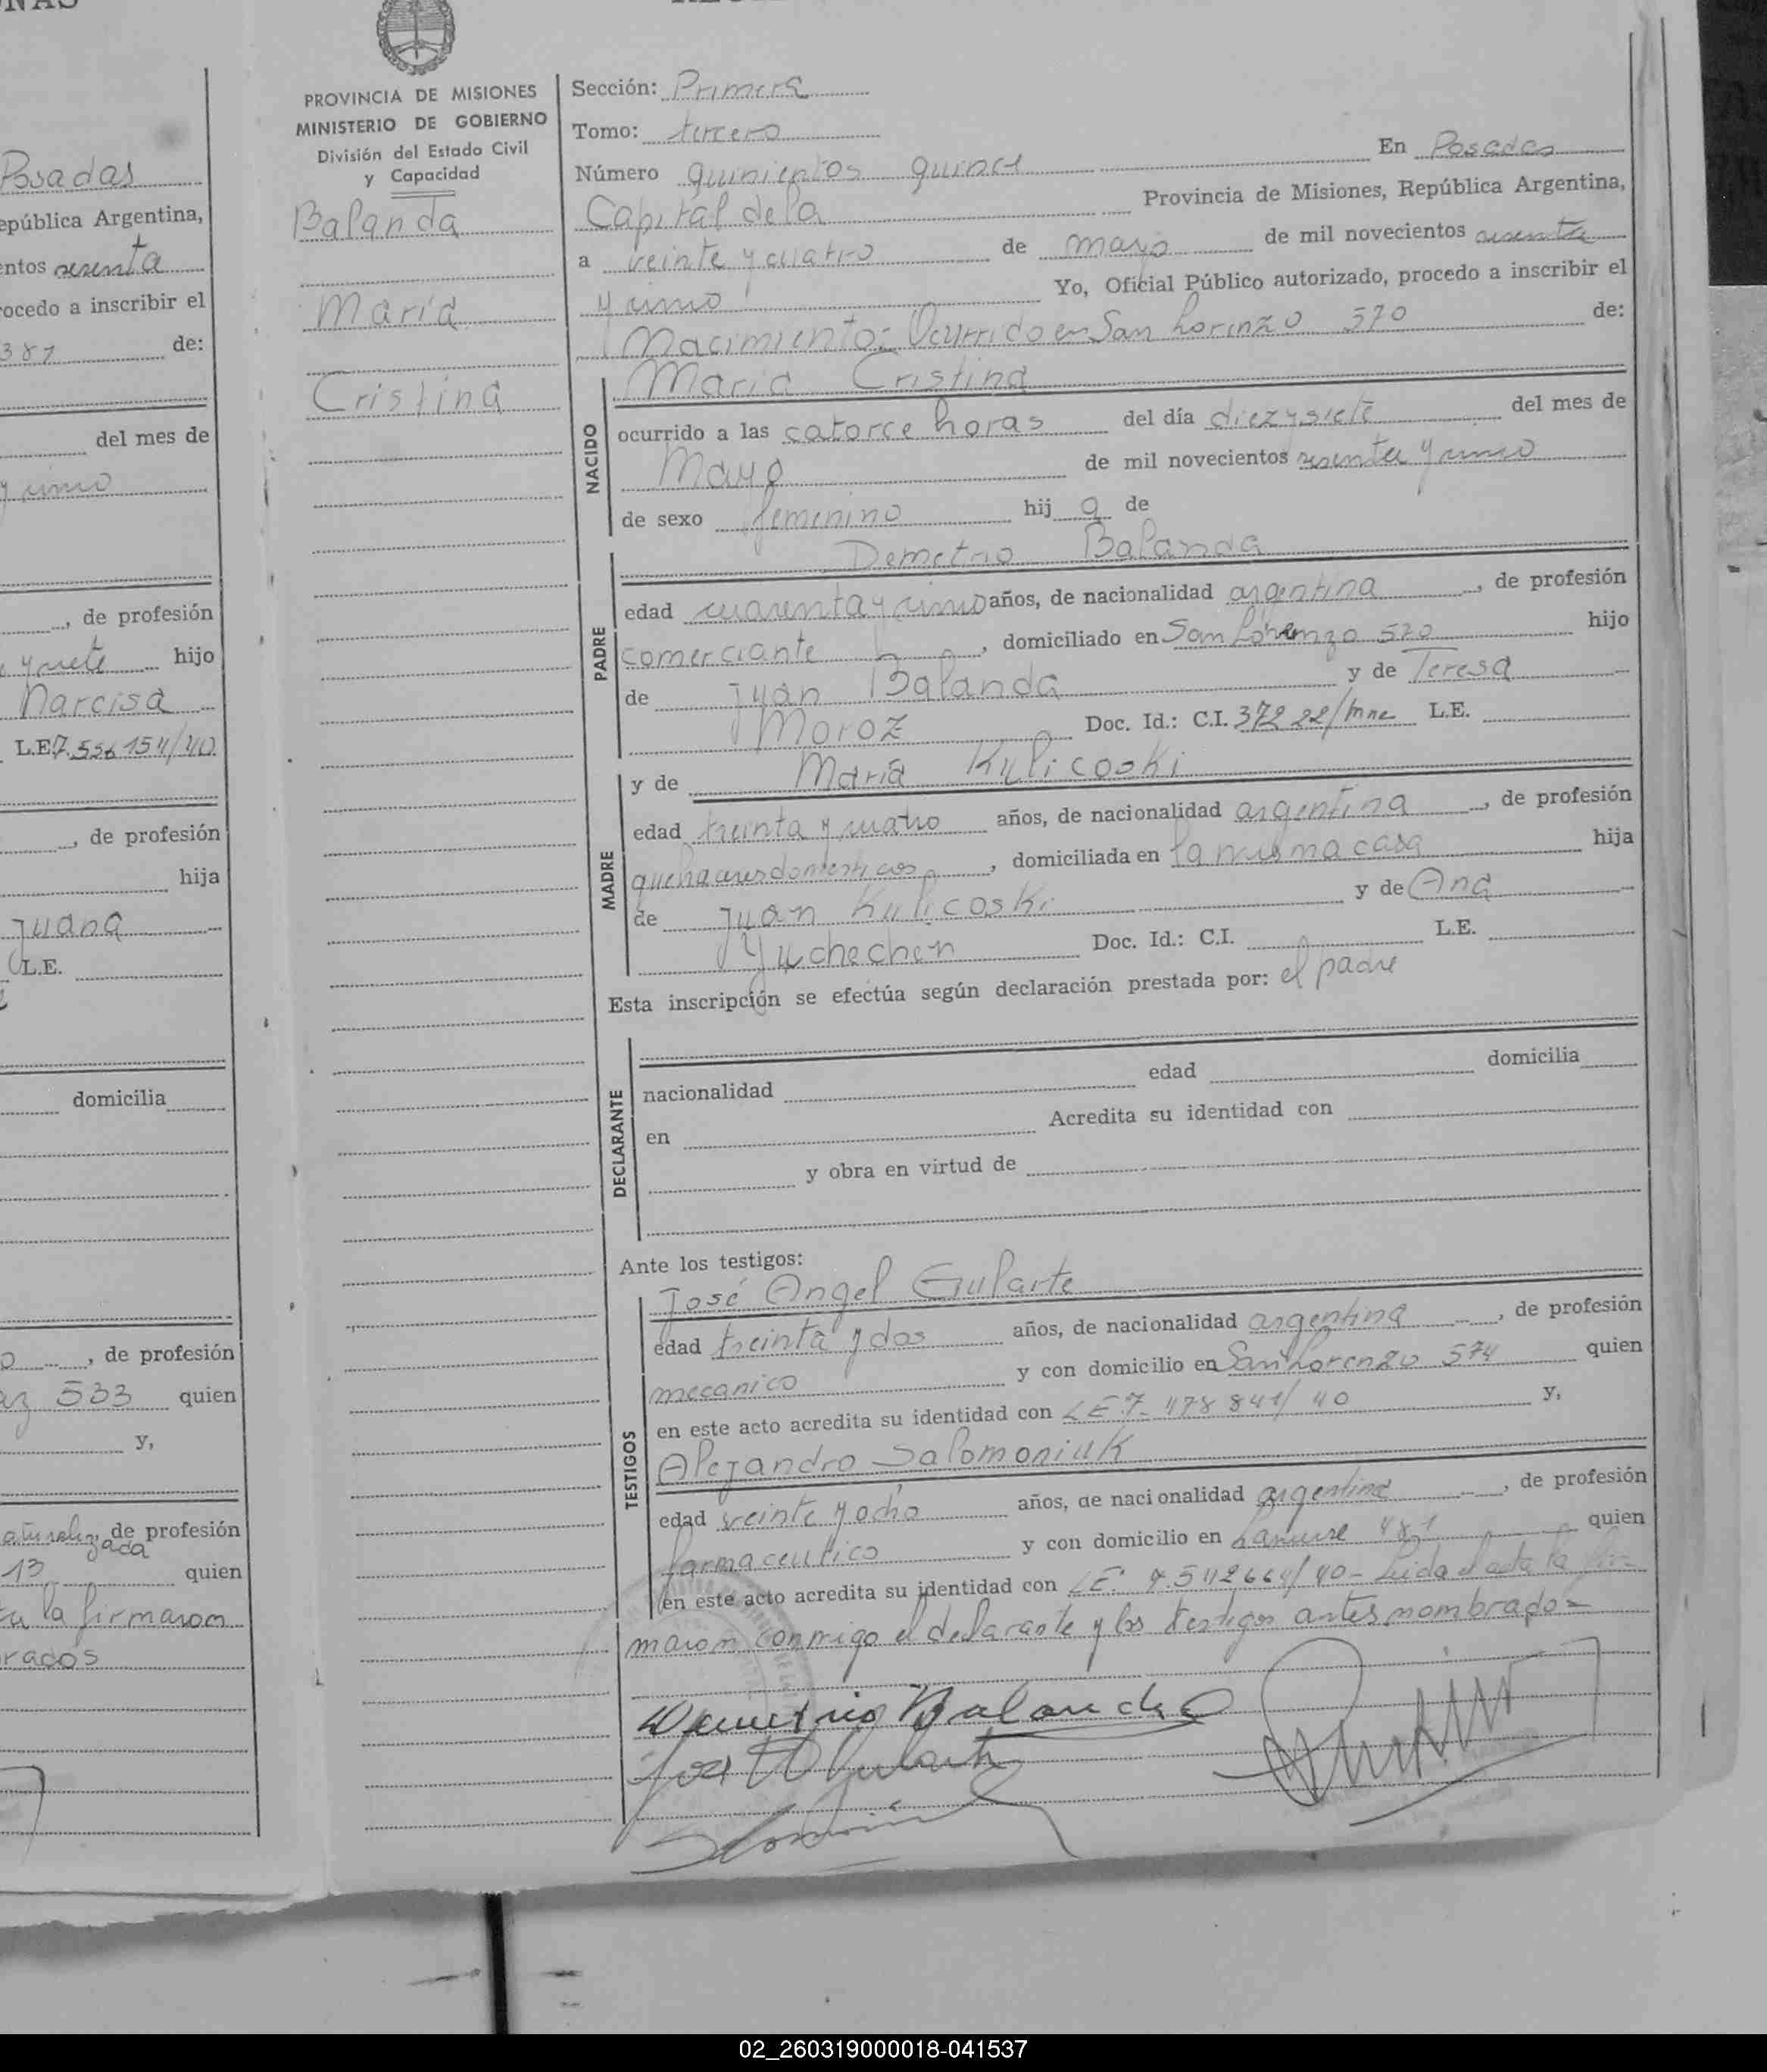 Posadas
epública Argentina,
entos sesenta
rocedo a inscribir el
387 de:
del mes de
y uno
, de profesión
y siete hijo
Narcisa
L.E. 7.556154/40
, de profesión
hija
Juana
L.E.
domicilia
, de profesión
az 533 quien
y,
de profesión
13 quien
la firmaron
rados
PROVINCIA DE MISIONES
MINISTERIO DE GOBIERNO
División del Estado Civil
y Capacidad
Balanda
María
Cristina
Sección: Primera
Tomo: tercero
Número quinientos quince En Posadas
Capital de la Provincia de Misiones, República Argentina,
a veinte y cuatro de mayo de mil novecientos sesenta
y uno Yo, Oficial Público autorizado, procedo a inscribir el
Nacimiento: Ocurrido en San Lorenzo 570 de:
NACIDO
María Cristina
ocurrido a las catorce horas del día diez y siete del mes de
Mayo de mil novecientos sesenta y uno
de sexo femenino hija de
PADRE
Demetrio Balanda
edad cuarenta y uno años, de nacionalidad argentina, de profesión
comerciante, domiciliado en San Lorenzo 570 hijo
de Juan Balanda y de Teresa
Moroz Doc. Id.: C.I. 372 22/mne L.E.
MADRE
y de María Kulicoski
edad treinta y cuatro años, de nacionalidad argentina, de profesión
quehaceres domesticos, domiciliada en la misma casa hija
de Juan Kulicoski y de Ana
Yuchechen Doc. Id.: C.I. L.E.
Esta inscripción se efectúa según declaración prestada por: el padre
DECLARANTE
nacionalidad edad domicilia
en Acredita su identidad con
y obra en virtud de
Ante los testigos:
TESTIGOS
José Angel Gularte
edad treinta y dos años, de nacionalidad argentina, de profesión
mecanico y con domicilio en San Lorenzo 574 quien
en este acto acredita su identidad con LE 7.478841/40 y,
Alejandro Salomoniuk
edad veinte y ocho años, de nacionalidad argentina, de profesión
farmaceutico y con domicilio en Lanusse 481 quien
en este acto acredita su identidad con LE. 7.542664/40- Leida el acta la fir-
maron conmigo el declarante y los testigos antes nombrados=
Demetrio Balanda
José A Gularte
02_260319000018-041537